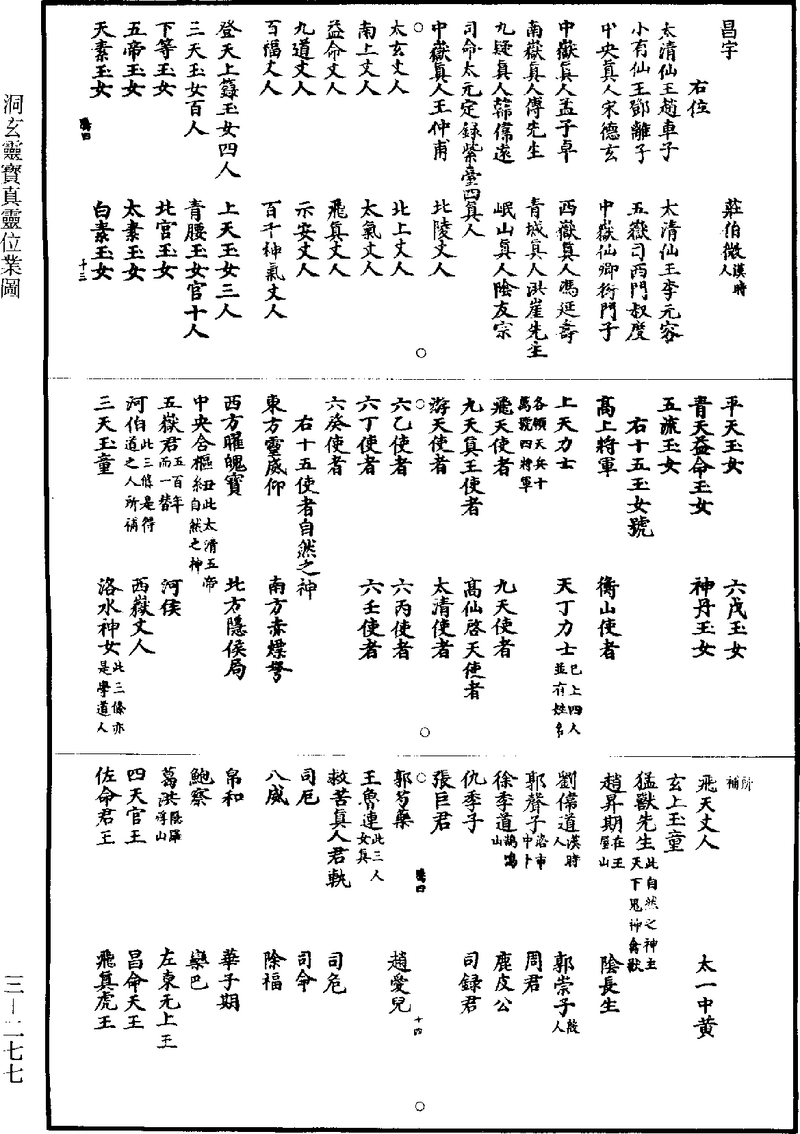 洞玄靈寶真靈位業圖
三—二七七
昌宇 莊伯微漢時人
右位
太清仙王趙車子 太清仙王李元容
小有仙王鄧離子 五嶽司西門叔度
中央真人宋德玄 中嶽仙卿衍門子
中嶽真人孟子卓 西嶽真人馮延壽
南嶽真人傅先生 青城真人洪崖先生
九疑真人韓偉遠 岷山真人陰友宗
司命太元定録紫臺四真人
中嶽真人王仲甫 北陵丈人
太玄丈人 北上丈人
南上丈人 太氣丈人
益命丈人 飛真丈人
九道丈人 示安丈人
百福丈人 百千神氣丈人
登天上籙玉女四人 上天玉女三人
三天玉女百人 青腰玉女官十人
下等玉女 北宮玉女
五帝玉女 太素玉女
天素玉女 白素玉女
騰四 十三
平天玉女 六戊玉女
青天益命玉女 神丹玉女
五流玉女
右十五玉女號
高上將軍 衡山使者
上天力士 天丁力士已上四人並有姓名
各領天兵十萬號四將軍
飛天使者 九天使者
九天真王使者 高仙啓天使者
游天使者 太清使者
六乙使者 六丙使者
六丁使者 六壬使者
六癸使者
右十五使者自然之神
東方靈威仰 南方赤熛弩
西方曜魄寶 北方隱侯局
中央含樞紐此太清五帝自然之神
五嶽君五百年而一替 河侯
河伯此三條是得道之人所補 西嶽丈人
三天玉童 洛水神女此三條亦是學道人
所補
飛天丈人 太一中黄
玄上玉童
猛獸先生此自然之神主天下鬼神禽獸
趙昇期在王屋山 陰長生
劉偉道漢時人 郭崇子殷人
郭聲子洛市中卜 周君
徐季道鵠鳴山 鹿皮公
仇季子 司録君
張巨君
郭芍藥 趙愛兒
騰四 十四
王魯連此三人女真
救苦真人君軌 司危
司厄 司命
八威 除福
帛和 華子期
鮑察 欒巴
葛洪隱羅浮山 左東无上王
四天官王 昌命天王
佐命君王 飛真虎王